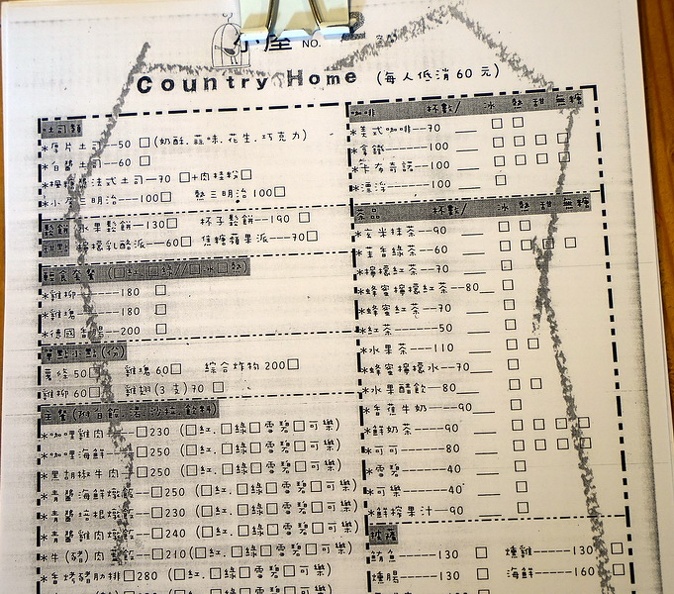 小屋 NO.
Country Home (每人低消60元)
吐司類
*厚片土司--50 (奶酥.蒜味.花生.巧克力)
土司---60
法式土司--70 +肉桂粉
三明治---100 熱三明治100
鬆餅 水果鬆餅---130 杯子鬆餅---190
檸檬乳酪派--60 焦糖蘋果派---70
輕食套餐
*雞柳-----180
*雞塊-----180
*德國香腸-----200
單點小點(份)
薯條50 雞塊60 綜合炸物200
雞柳60 雞翅(3支)70
主餐
*咖哩雞肉---230 (紅.綠雪碧可樂)
*咖哩海鮮---250 (紅.綠雪碧可樂)
*黑胡椒牛肉--250 (紅.綠雪碧可樂)
*青醬海鮮燉飯--250 (紅.綠雪碧可樂)
*青醬培根燉飯--250 (紅.綠雪碧可樂)
*青醬雞肉燉飯--240 (紅.綠雪碧可樂)
*牛(豬)肉---210(紅.綠雪碧可樂)
*香烤豬肋排280 (紅.綠雪碧可樂)
咖啡 杯數/ 冰 熱 甜 無糖
*美式咖啡--70
*拿鐵------100
*卡布奇諾--100
*漂浮------100
茶品 杯數/ 冰 熱 甜 無糖
*玄米抹茶--90
*茉香綠茶--60
*檸檬紅茶--70
*蜂蜜檸檬紅茶--80
*蜂蜜紅茶---70
*紅茶------50
*水果茶----110
*蜂蜜檸檬水--70
*水果醋飲--80
*香蕉牛奶---90
*鮮奶茶---90
*可可-----80
*雪碧-----40
*可樂-----40
*鮮榨果汁--90
鮪魚------130 燻雞-----130
燻腸------130 海鮮----160